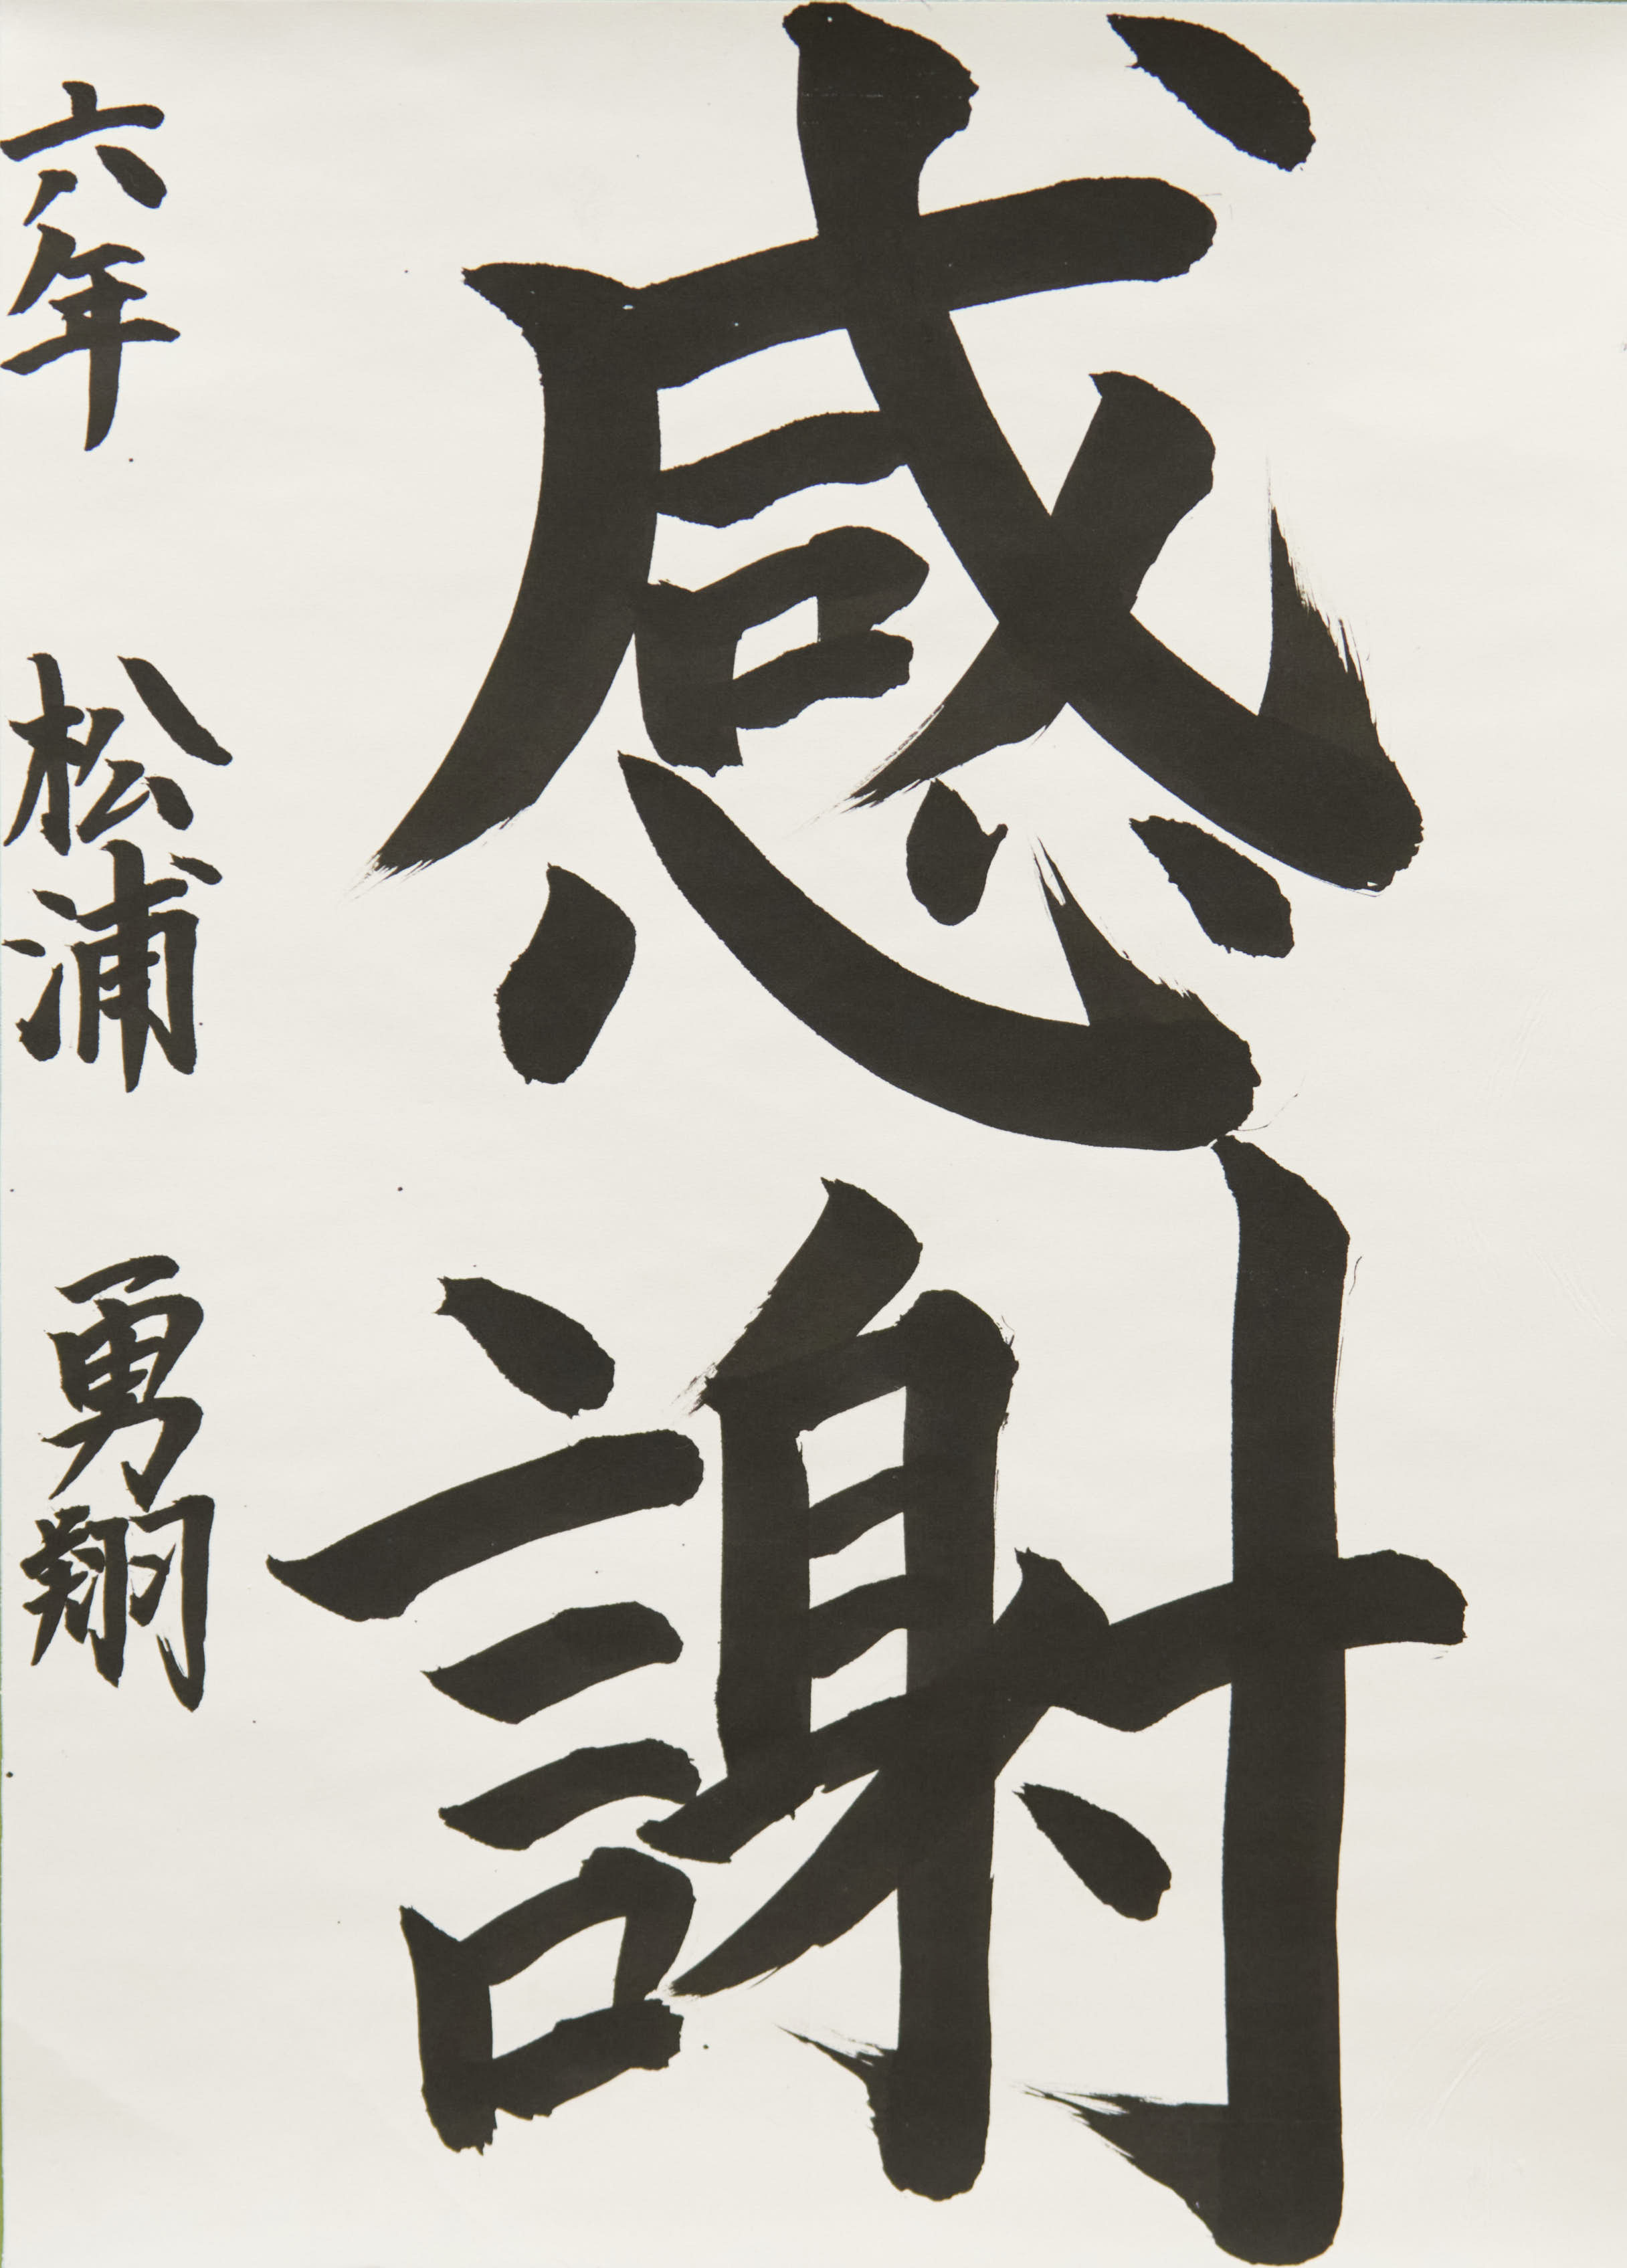 感謝
六年 松浦 勇翔